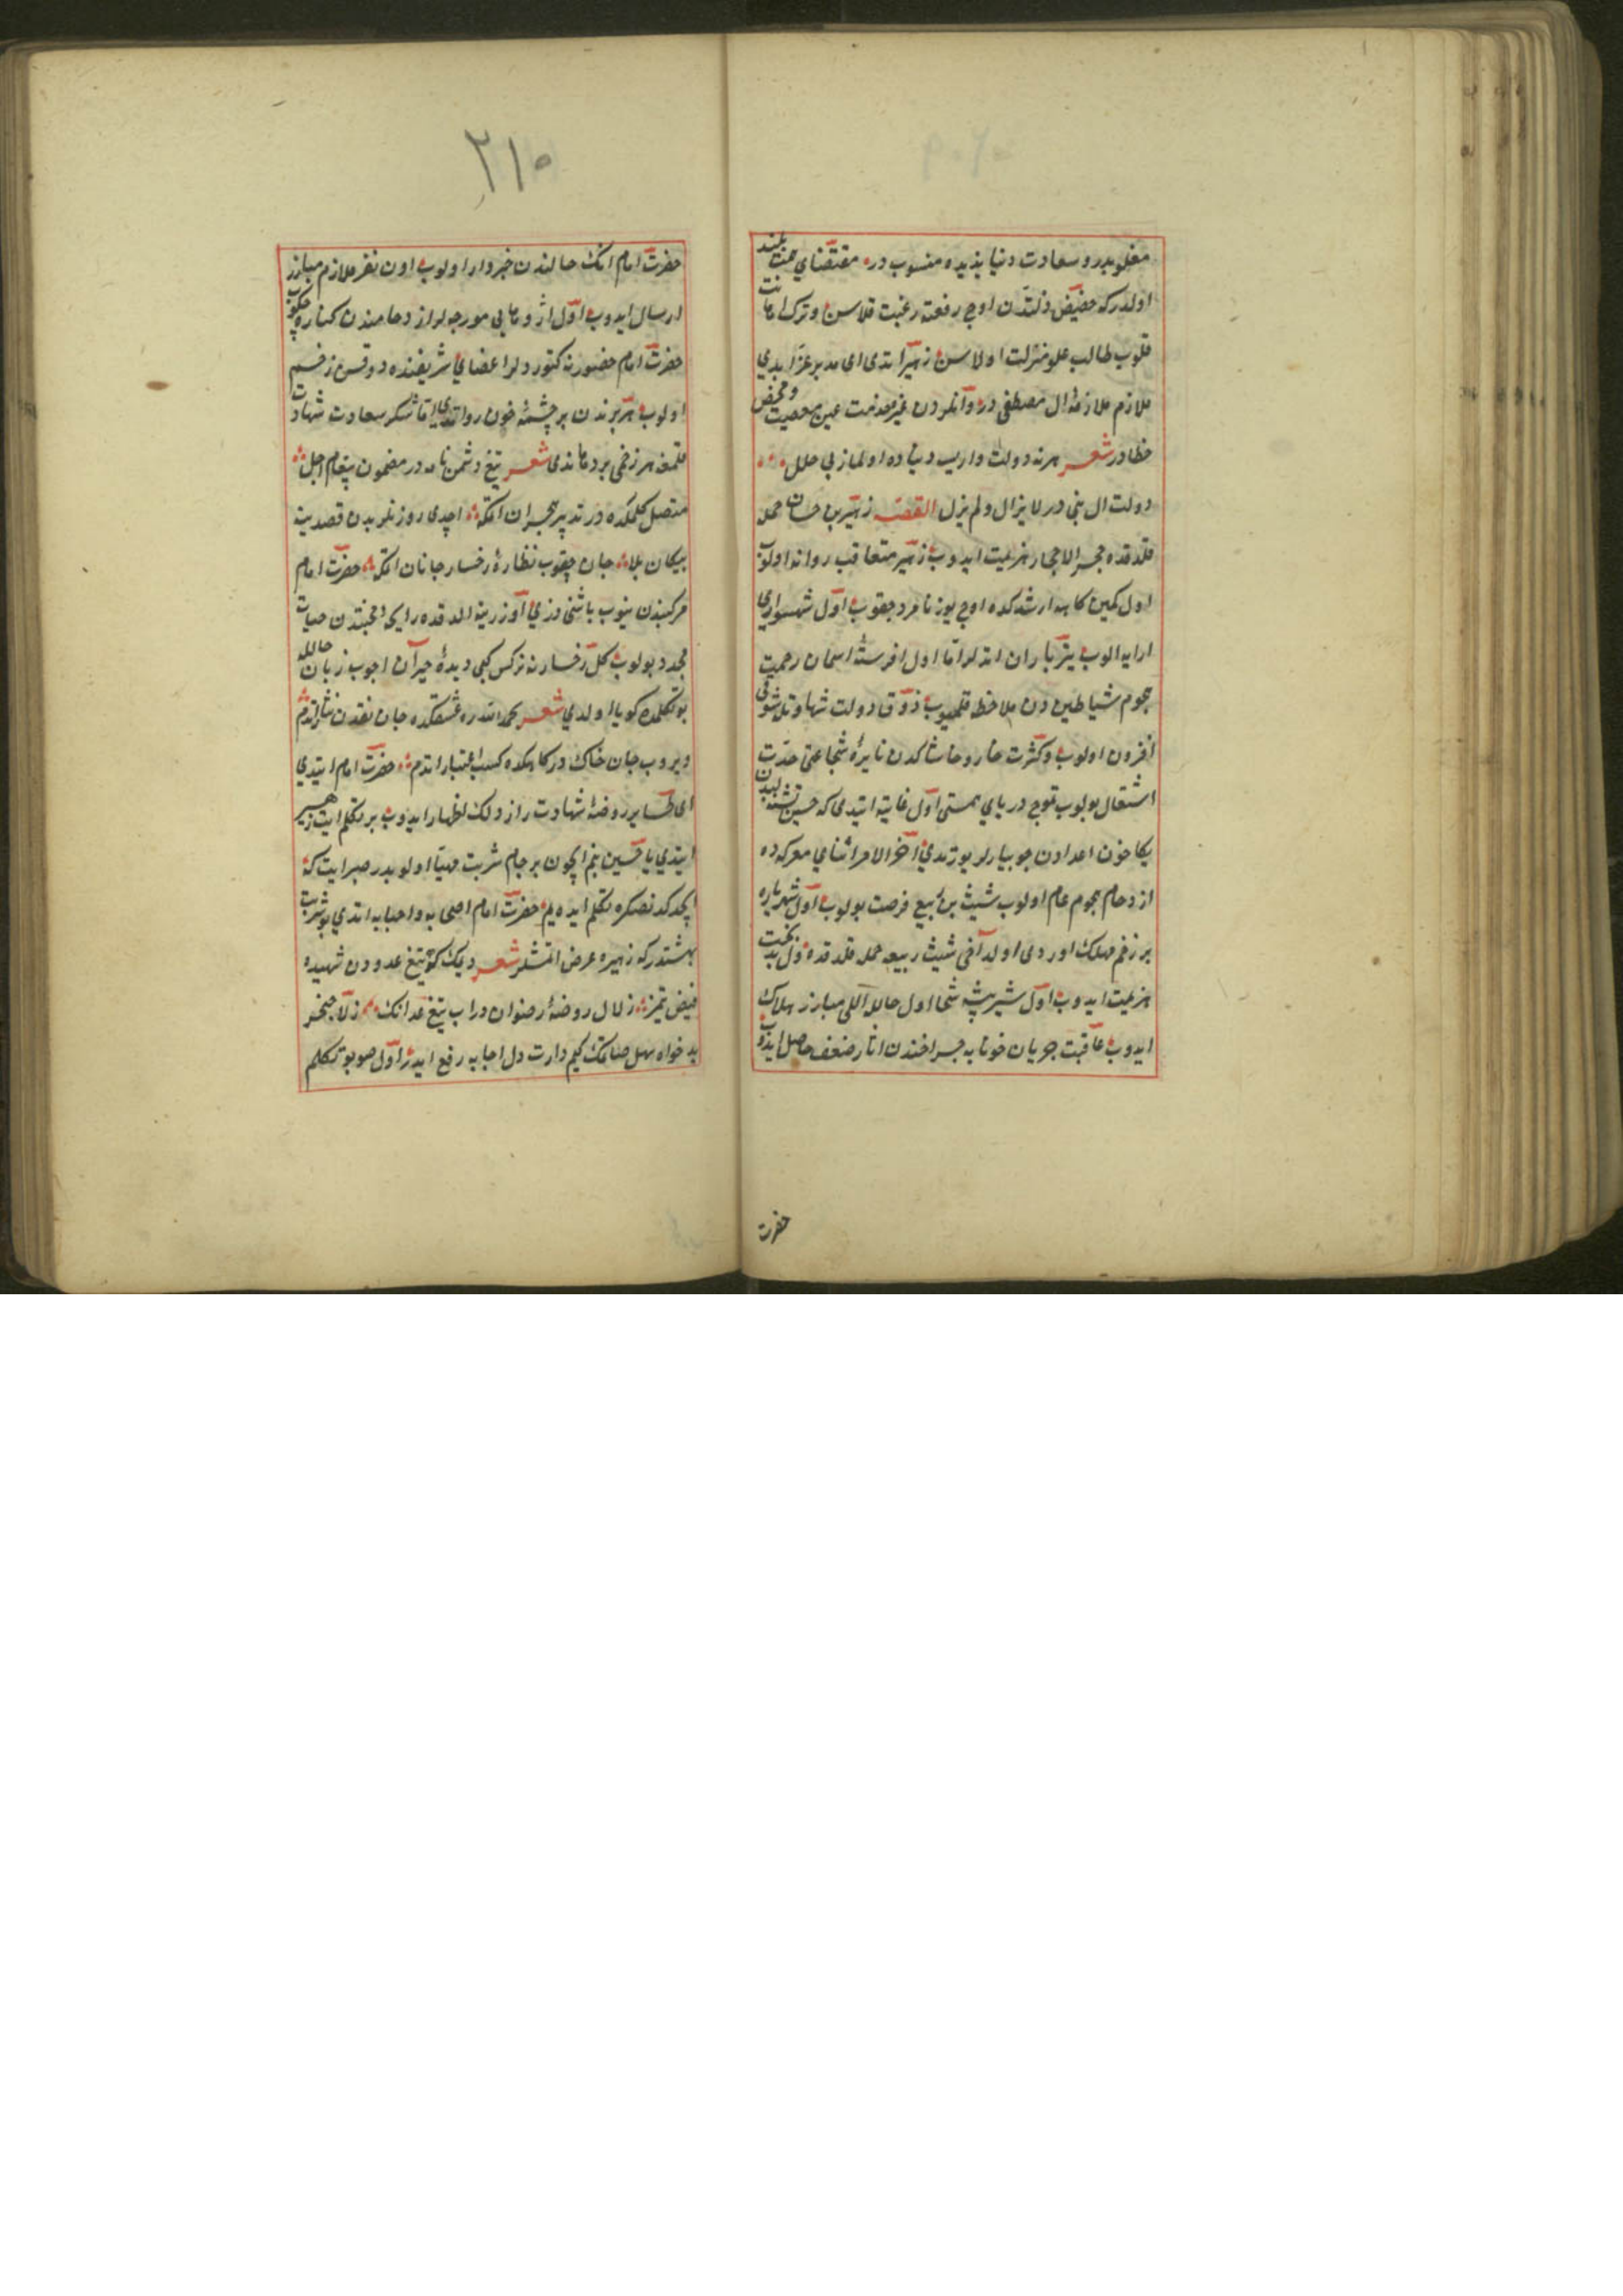 مغلوبدر و سعادت دنیا بذیده منسوب در مقتضای همت بلند
اولدرکه حضیض ذلتدن اوج رفعته رغبت قلاسن و ترک امانت
قلوب طالب علو منزلت اولاسن زهیر ایتدی ای مدبر عز ابدی
ملازم ملازمهٔ ال مصطفی در و آنلردن غیر خدمت عین معصیت و محض
خطادر شعر هر نه دولت وار ایسه دنیاده اولماز بی خلل
دولت ال نبی در لا یزال و لم یزل القصه زهیر بن حسان حمله
قلدقده حجر الاحجار هزیمت ایدوب زهیر متعاقب روانه اولوب
اول کمین کاهه ارشدکده اوچ یوز نامرد چقوب اول شهسواری
ارایه الوب تیر باران اتدلر اما اول افرشتهٔ اسمان رحمت
هجوم شیاطین دن ملاحظه قلمیوب ذوق دولت شهادتله شوقی
افزون اولوب و کثرت خار و خاشاکدن نایرهٔ شجاعتی حدت
اشتعال بولوب تموج دریای همتی اول غایته ایتدی که حسین تشنه لبدن
یکا خون اعدادن جویبارلر یورتدی اخر الامر اثنای معرکه ده
ازدحام هجوم عام اولوب شیث بن ربیع فرصت بولوب اول شهریاره
بر زخم مهلک اوردی اولد اخی شیث ربیعه حمله قلدقده اول بدبخت
هزیمت ایدوب اول شیر بیشهٔ شجاع اول حالله اللی مبارز هلاک
ایدوب عاقبت جریان خونابه جراحتدن اثار ضعف حاصل ایدوب
حضرت
۲۱۰
حضرت امام انک حالندن خبردار اولوب اون نفر ملازم مبارز
ارسال ایدوب اول اژدهایی مورچه لر ازدحامندن کناره چکوب
حضرت امام حضورنه کتوردلر اعضای شریفنده دوقسن زخم
اولوب هر برندن بر چشمهٔ خون روان ایدی اما شکر سعادت شهادت
قلمغه هر زخمی بر دهان ایدی شعر تیغ دشمن نامه در مضمون پیغام اجل
متصل کلمکده در تدبیر هجران اتمکه اچدی روزنلر بدن قصرینه
پیکان بلا جان چقوب نظارهٔ رخسار جانان اتمکه حضرت امام
مرکبندن ینوب باشنی دزی اوزرینه الدقده رایحهٔ محبتندن حیات
مجدد بولوب کل رخسارنه نرکس کبی دیدهٔ حیران اچوب زبان حالله
بو تکلمده کویا اولدی شعر بحمد الله ره عشقکده جان نقدن نثار اتدم
ویروب جان خاک درکاهکده کسب اعتبار اتدم حضرت امام ایتدی
ای طایر روضهٔ شهادت راز دلک اظهار ایدوب بر تکلم ایت زهیر
ایتدی یا حسین بنم ایچون بر جام شربت مهیا اولوبدر صبر ایت که
ایچدکدنصکره تکلم ایده یم حضرت امام اصحابه و احبابه ایتدی بو شربت
بهشتدرکه زهیره عرض اتمشلر شعر دیمک کم تیغ عدودن شهیده
فیض یتمز زلال روضهٔ رضوان در اب تیغ عدانک زلال خنجر
بدخواه سهل صانمک کیم دارت دل احبابه رفع ایدر اول صو بو تکلم